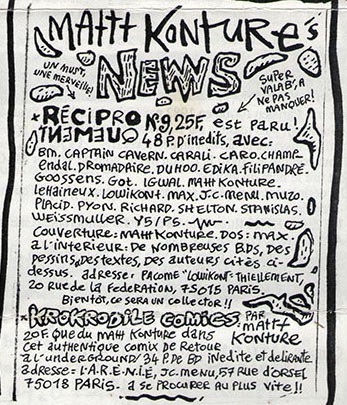 MAttt KONTURE's
NEWS
UN MUST,
UNE MERVEILLE!
SUPER
VALAB', A
NE PAS
MANQUER!
* RÉCIPRO
QUEMENT
N°9, 25F, est PARU!
48 P. D'inedits, avec:
BM. CAPTAIN CAVERN. CARALI. CARO. CHAMP.
Endal. DROMADAIRE. DUHOO. EDIKA. FILIPANDRÉ.
GOOSSENS. Got. IGWAL. MAttt KONTURE.
LeHaineux. LOWIKONT. MAX. J.C. MENU. MUZO.
PLACID. PYON. RICHARD. SHELTON. STANISLAS.
WEISSMULLER. Y5/P5.
COUVERTURE: MAttt KONTURE. DOS: MAX.
A L'INTERIEUR: DE NOMBREUSES BDS, DES
DESSINS, DES TEXTES, DES AUTEURS CITÉS CI-
DESSUS. ADRESSE: PACOME "LOWIKONT" THIELLEMENT,
20 RUE DE LA FEDERATION, 75015 PARIS.
Bientôt, ce SERA UN COLLECTOR!!
* KROKRODILE COMICS PAR
MAttt
KONTURE
20F. Que du MAttt KONTURE dans
cet authentique comix de Retour
à l'underground/ 34 P. DE BD INÉDITE et délirante
adresse= L'A.R.E.N.I.E, JC. MENU, 57 RUE D'ORSEL
75018 PARIS. A SE PROCURER AU PLUS VITE!!